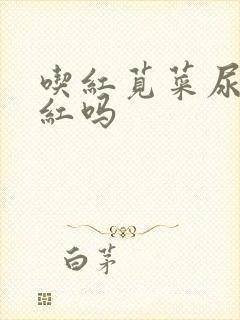 喫紅莧菜尿
紅吗
白茅